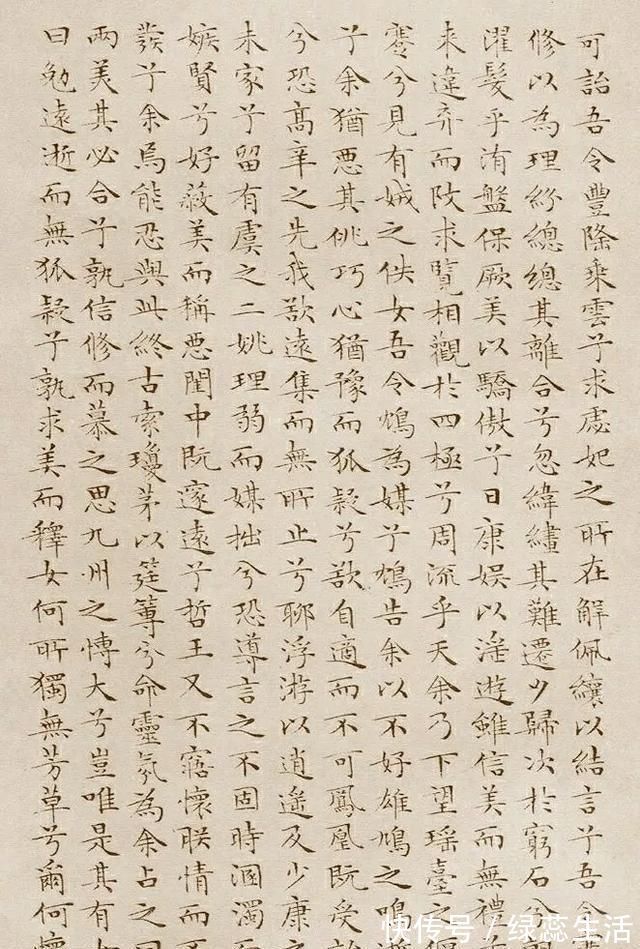 可詒吾令豐隆乘雲兮求虙妃之所在解佩纕以結言兮吾令
修以為理紛總總其離合兮忽緯繣其難遷夕歸次於窮石兮
濯髮乎洧盤保厥美以驕傲兮日康娛以淫遊雖信美而無禮
来違弃而改求覽相觀於四極兮周流乎天余乃下望瑤臺之
蹇兮見有娀之佚女吾令鴆為媒兮鴆告余以不好雄鳩之鳴
兮余猶惡其佻巧心猶豫而狐疑兮欲自適而不可鳳凰既受詒
兮恐高辛之先我欲遠集而無所止兮聊浮游以逍遙及少康之
未家兮留有虞之二姚理弱而媒拙兮恐導言之不固時溷濁而
嫉賢兮好蔽美而稱惡閨中既邃遠兮哲王又不寤懷朕情而不
發兮余焉能忍與此終古索瓊茅以筳篿兮命靈氛為余占之曰
兩美其必合兮孰信修而慕之思九州之博大兮豈唯是其有
曰勉遠逝而無狐疑兮孰求美而釋女何所獨無芳草兮爾何懷
快传号/绿蕊生活